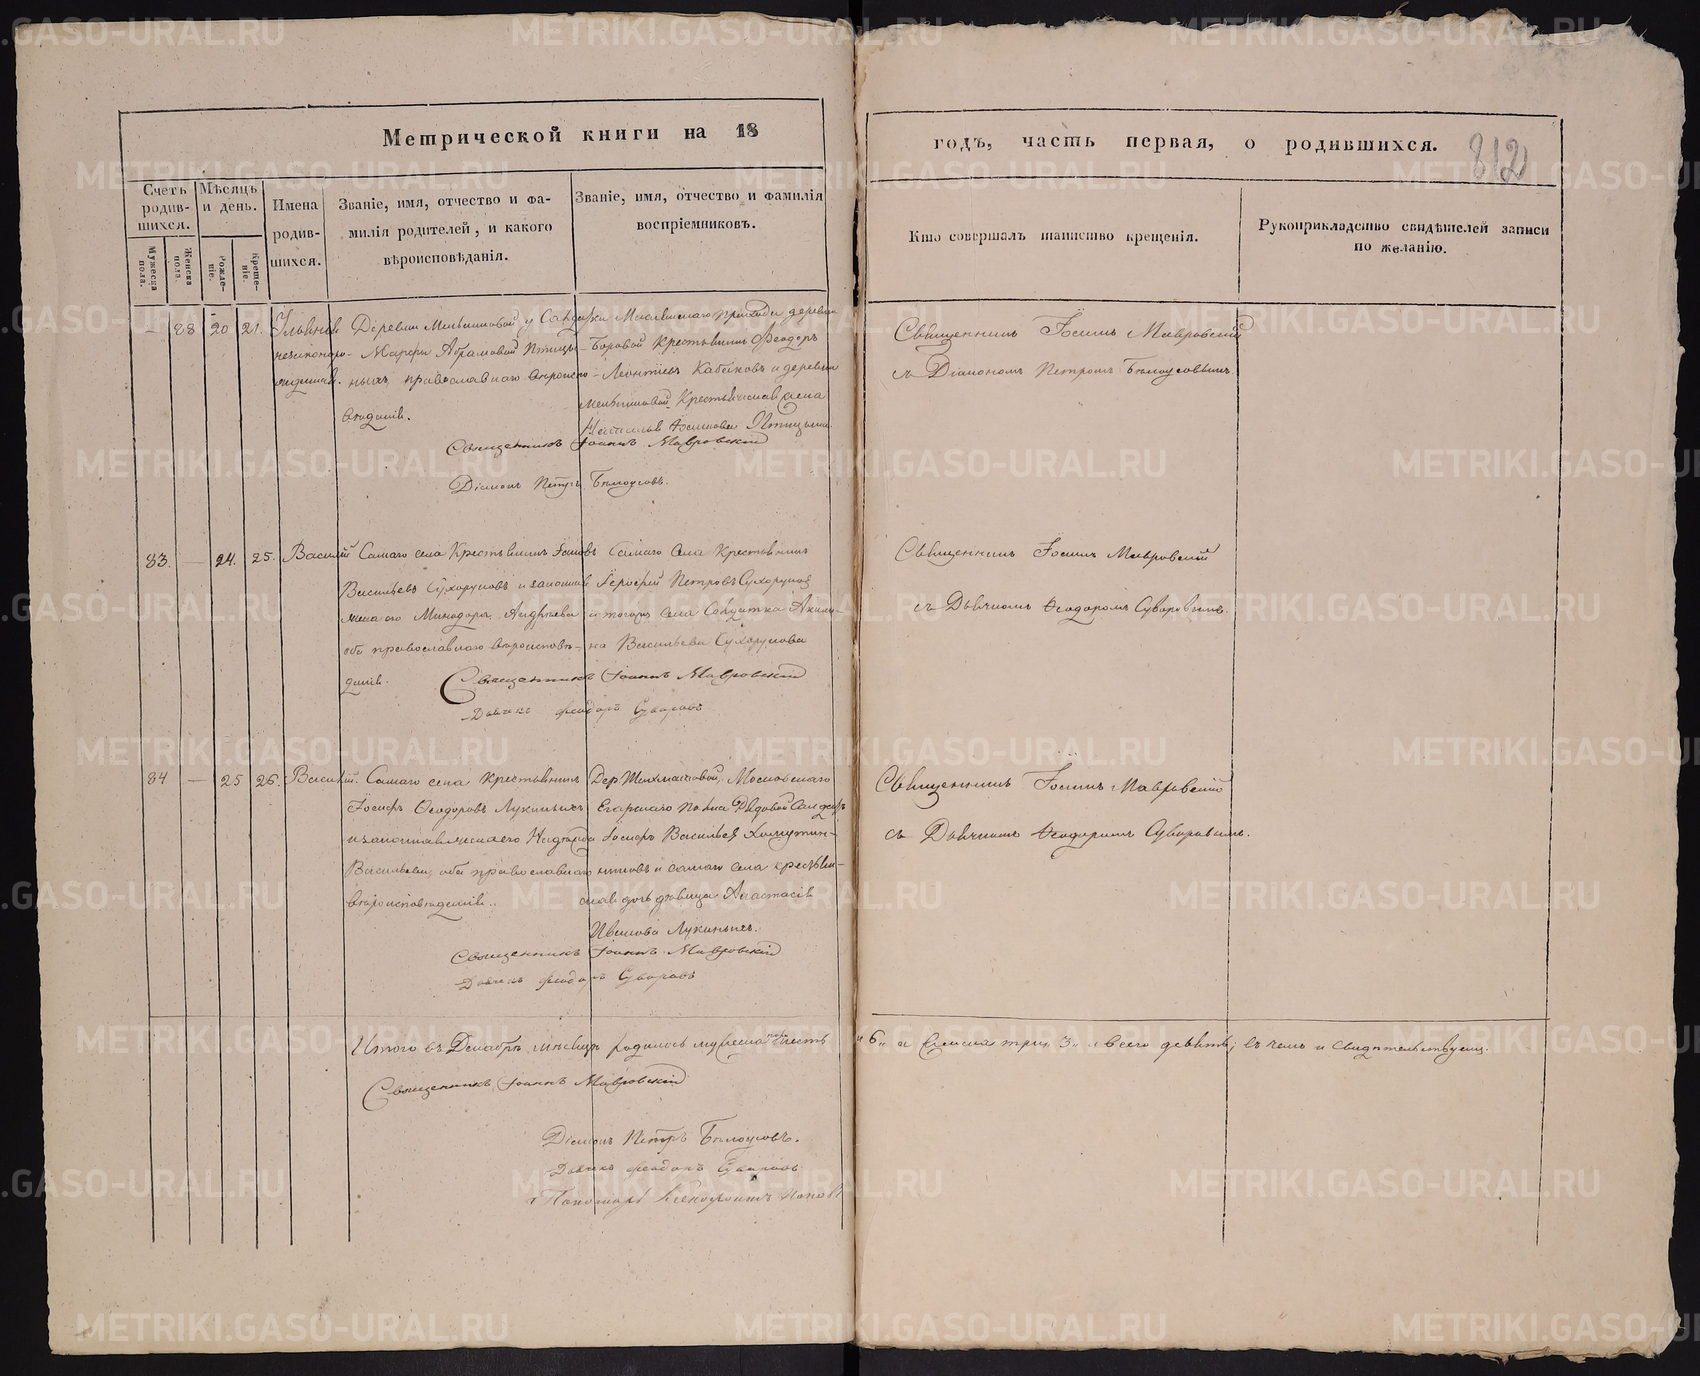 Метрической книги на 18
годъ, часть первая, о родившихся.
812
Счетъ родив-шихся.
Мѣсяцъ и день.
Имена родив-шихся.
Званіе, имя, отчество и фа-
милія родителей, и какого
вѣроисповѣданія.
Званіе, имя, отчество и фамилія
воспріемниковъ.
Кто совершалъ таинство крещенія.
Рукоприкладство свидѣтелей записи
по желанію.
Мужеска пола.
Женска пола.
Рожде-ніе.
Креще-ніе.
88 20 21.
прихода деревни
Марфы Абрамовой Птицы-
Боровой Крестьянинъ Ѳеодоръ
ныхъ, православнаго вѣроиспо-
Леонтіевъ Кабаковъ и деревни
вѣданія.
Птицына
Священникъ Іоаннъ Мавровскій
съ Діакономъ Петромъ Бѣлоусовымъ
Священникъ Іоаннъ Мавровскій
Діаконъ Петръ Бѣлоусовъ.
83. — 24. 25. Василій
Самаго села Крестьянинъ
Васильевъ Сухоруковъ и законная
жена его Андреева
оба православнаго вѣроисповѣ-
данія.
Самаго Села Крестьянинъ
Петровъ Сухоруковъ
и тогожъ села Солдатка Акили-
на Васильева Сухорукова
Священникъ Іоаннъ Мавровскій
съ Дьячкомъ Ѳеодоромъ Суворовымъ.
Священникъ Іоаннъ Мавровскій
Дьячекъ Феодоръ Суворовъ
84 — 25 26. Василій.
Самаго села Крестьянинъ
Іосифъ Ѳеодоровъ Лукиныхъ
и законная жена его Надежда
Васильева, оба православнаго
вѣроисповѣданія.
Московскаго
Егарскаго полка Рядовой
Іосифъ Васильевъ
и самаго села крестьян-
ская дочь дѣвица Анастасія
Иванова Лукиныхъ.
Священникъ Іоаннъ Мавровскій
съ Дьячкомъ Ѳеодоромъ Суворовымъ.
Священникъ Іоаннъ Мавровскій
Дьячекъ Феодоръ Суворовъ
Итого въ Декабрѣ мѣсяцѣ родилось мужеска пола шесть
„6„ а женска три 3„ а всего девять; въ чемъ и свидѣтельствуемъ.
Священникъ Іоаннъ Мавровскій
Діаконъ Петръ Бѣлоусовъ.
Дьячекъ Феодоръ Суворовъ
Пономарь Ксенофонтъ Поповъ
METRIKI.GASO-URAL.RU